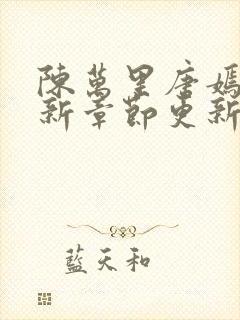 陳萬里唐嫣
新章節更新
藍天和